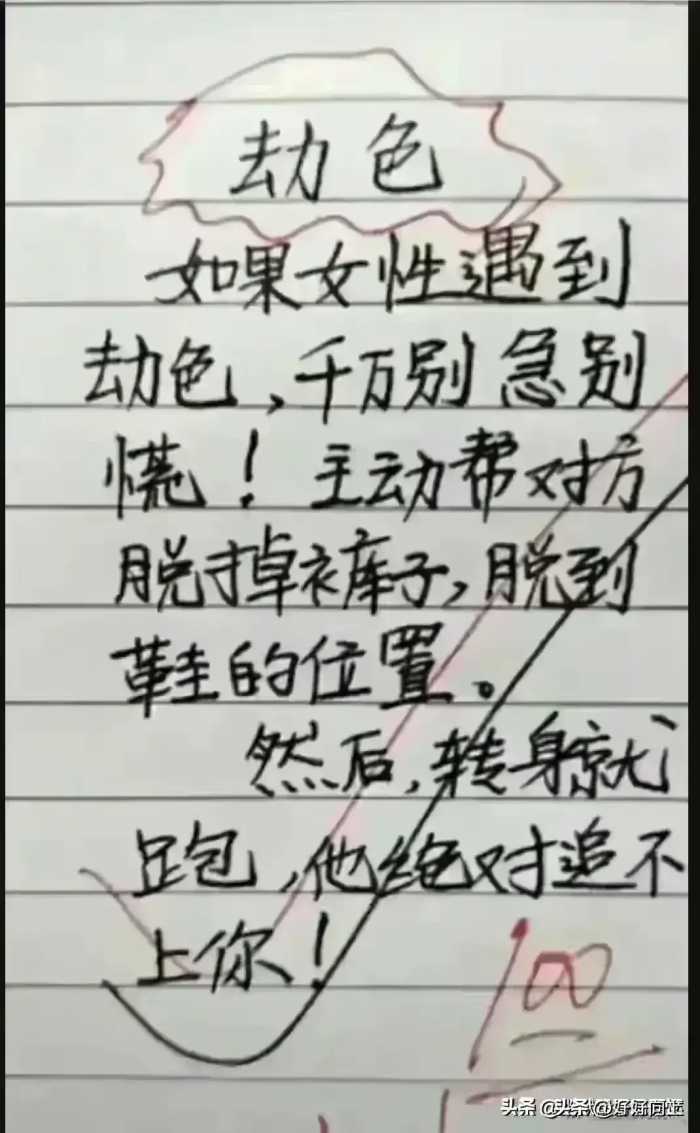 劫色
如果女性遇到
劫色,千万别急别
慌!主动帮对方
脱掉裤子,脱到
鞋的位置。
然后,转身就
跑,他绝对追不
上你!
100
头条 @好好向上